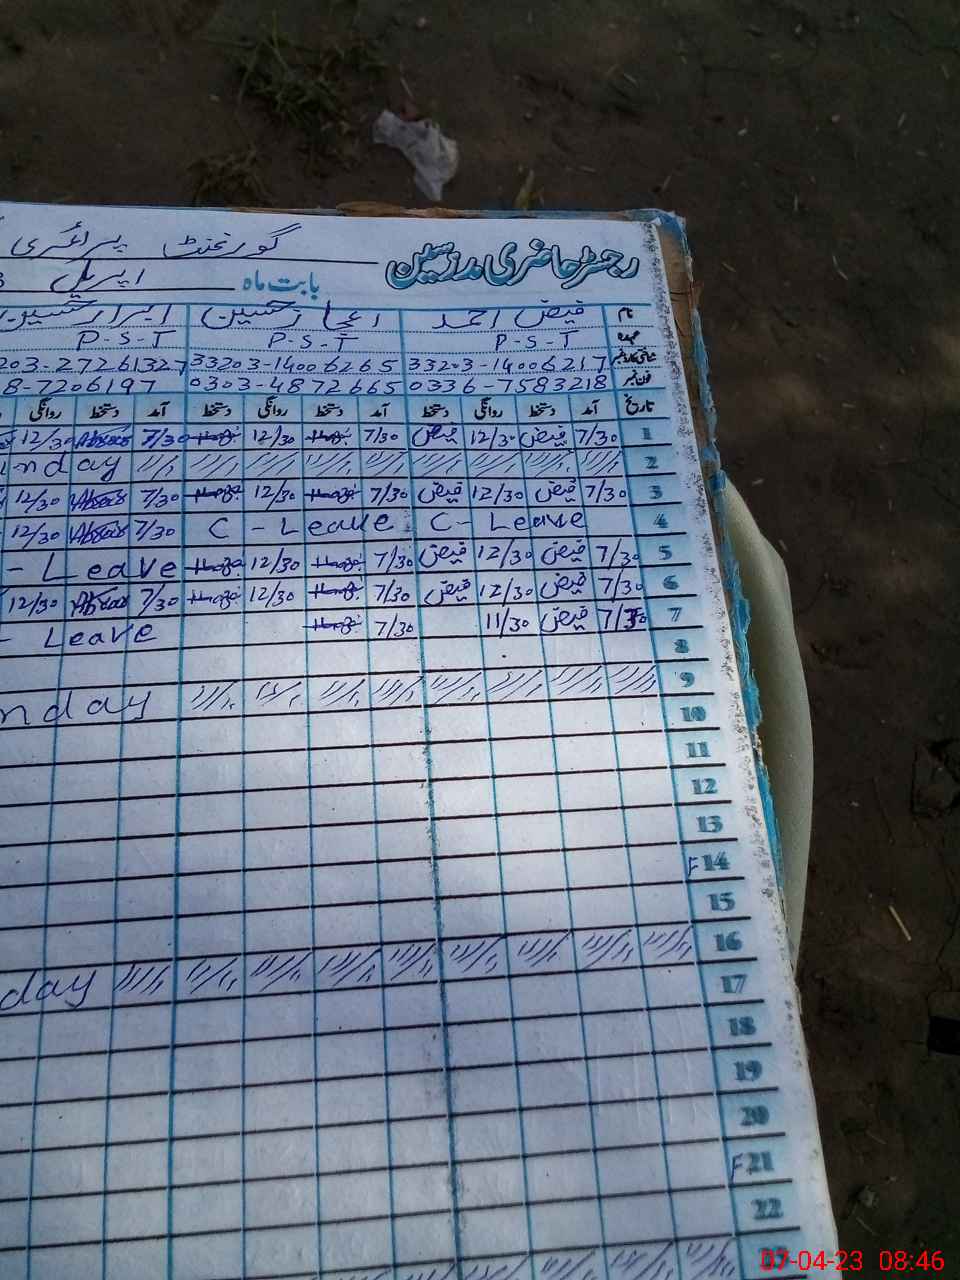 گورنمنٹ پرائمری
رجسٹر حاضری مدرسین
بابت ماہ اپریل
نام فیض احمد اعجاز حسین ابرار حسین
عہدہ P-S-T P-S-T P-S-T
شناختی کارڈ نمبر 33203-14006217 33203-14006265 203-27261327
فون نمبر 0336-7583218 0303-4872665 8-7206197
تاریخ آمد دستخط روانگی دستخط آمد دستخط روانگی دستخط آمد دستخط روانگی
1 7/30 فیض 12/30 فیض 7/30 12/30 7/30 12/30
2 nday
3 7/30 فیض 12/30 فیض 7/30 12/30 7/30 12/30
4 C-Leave C-Leave 7/30 12/30
5 7/30 فیض 12/30 فیض 7/30 12/30 -Leave
6 7/30 فیض 12/30 فیض 7/30 12/30 7/30 12/30
7 فیض 11/30 7/30 -Leave
8
9 nday
10
11
12
13
F14
15
16
17 day
18
19
20
F21
22
07-04-23 08:46